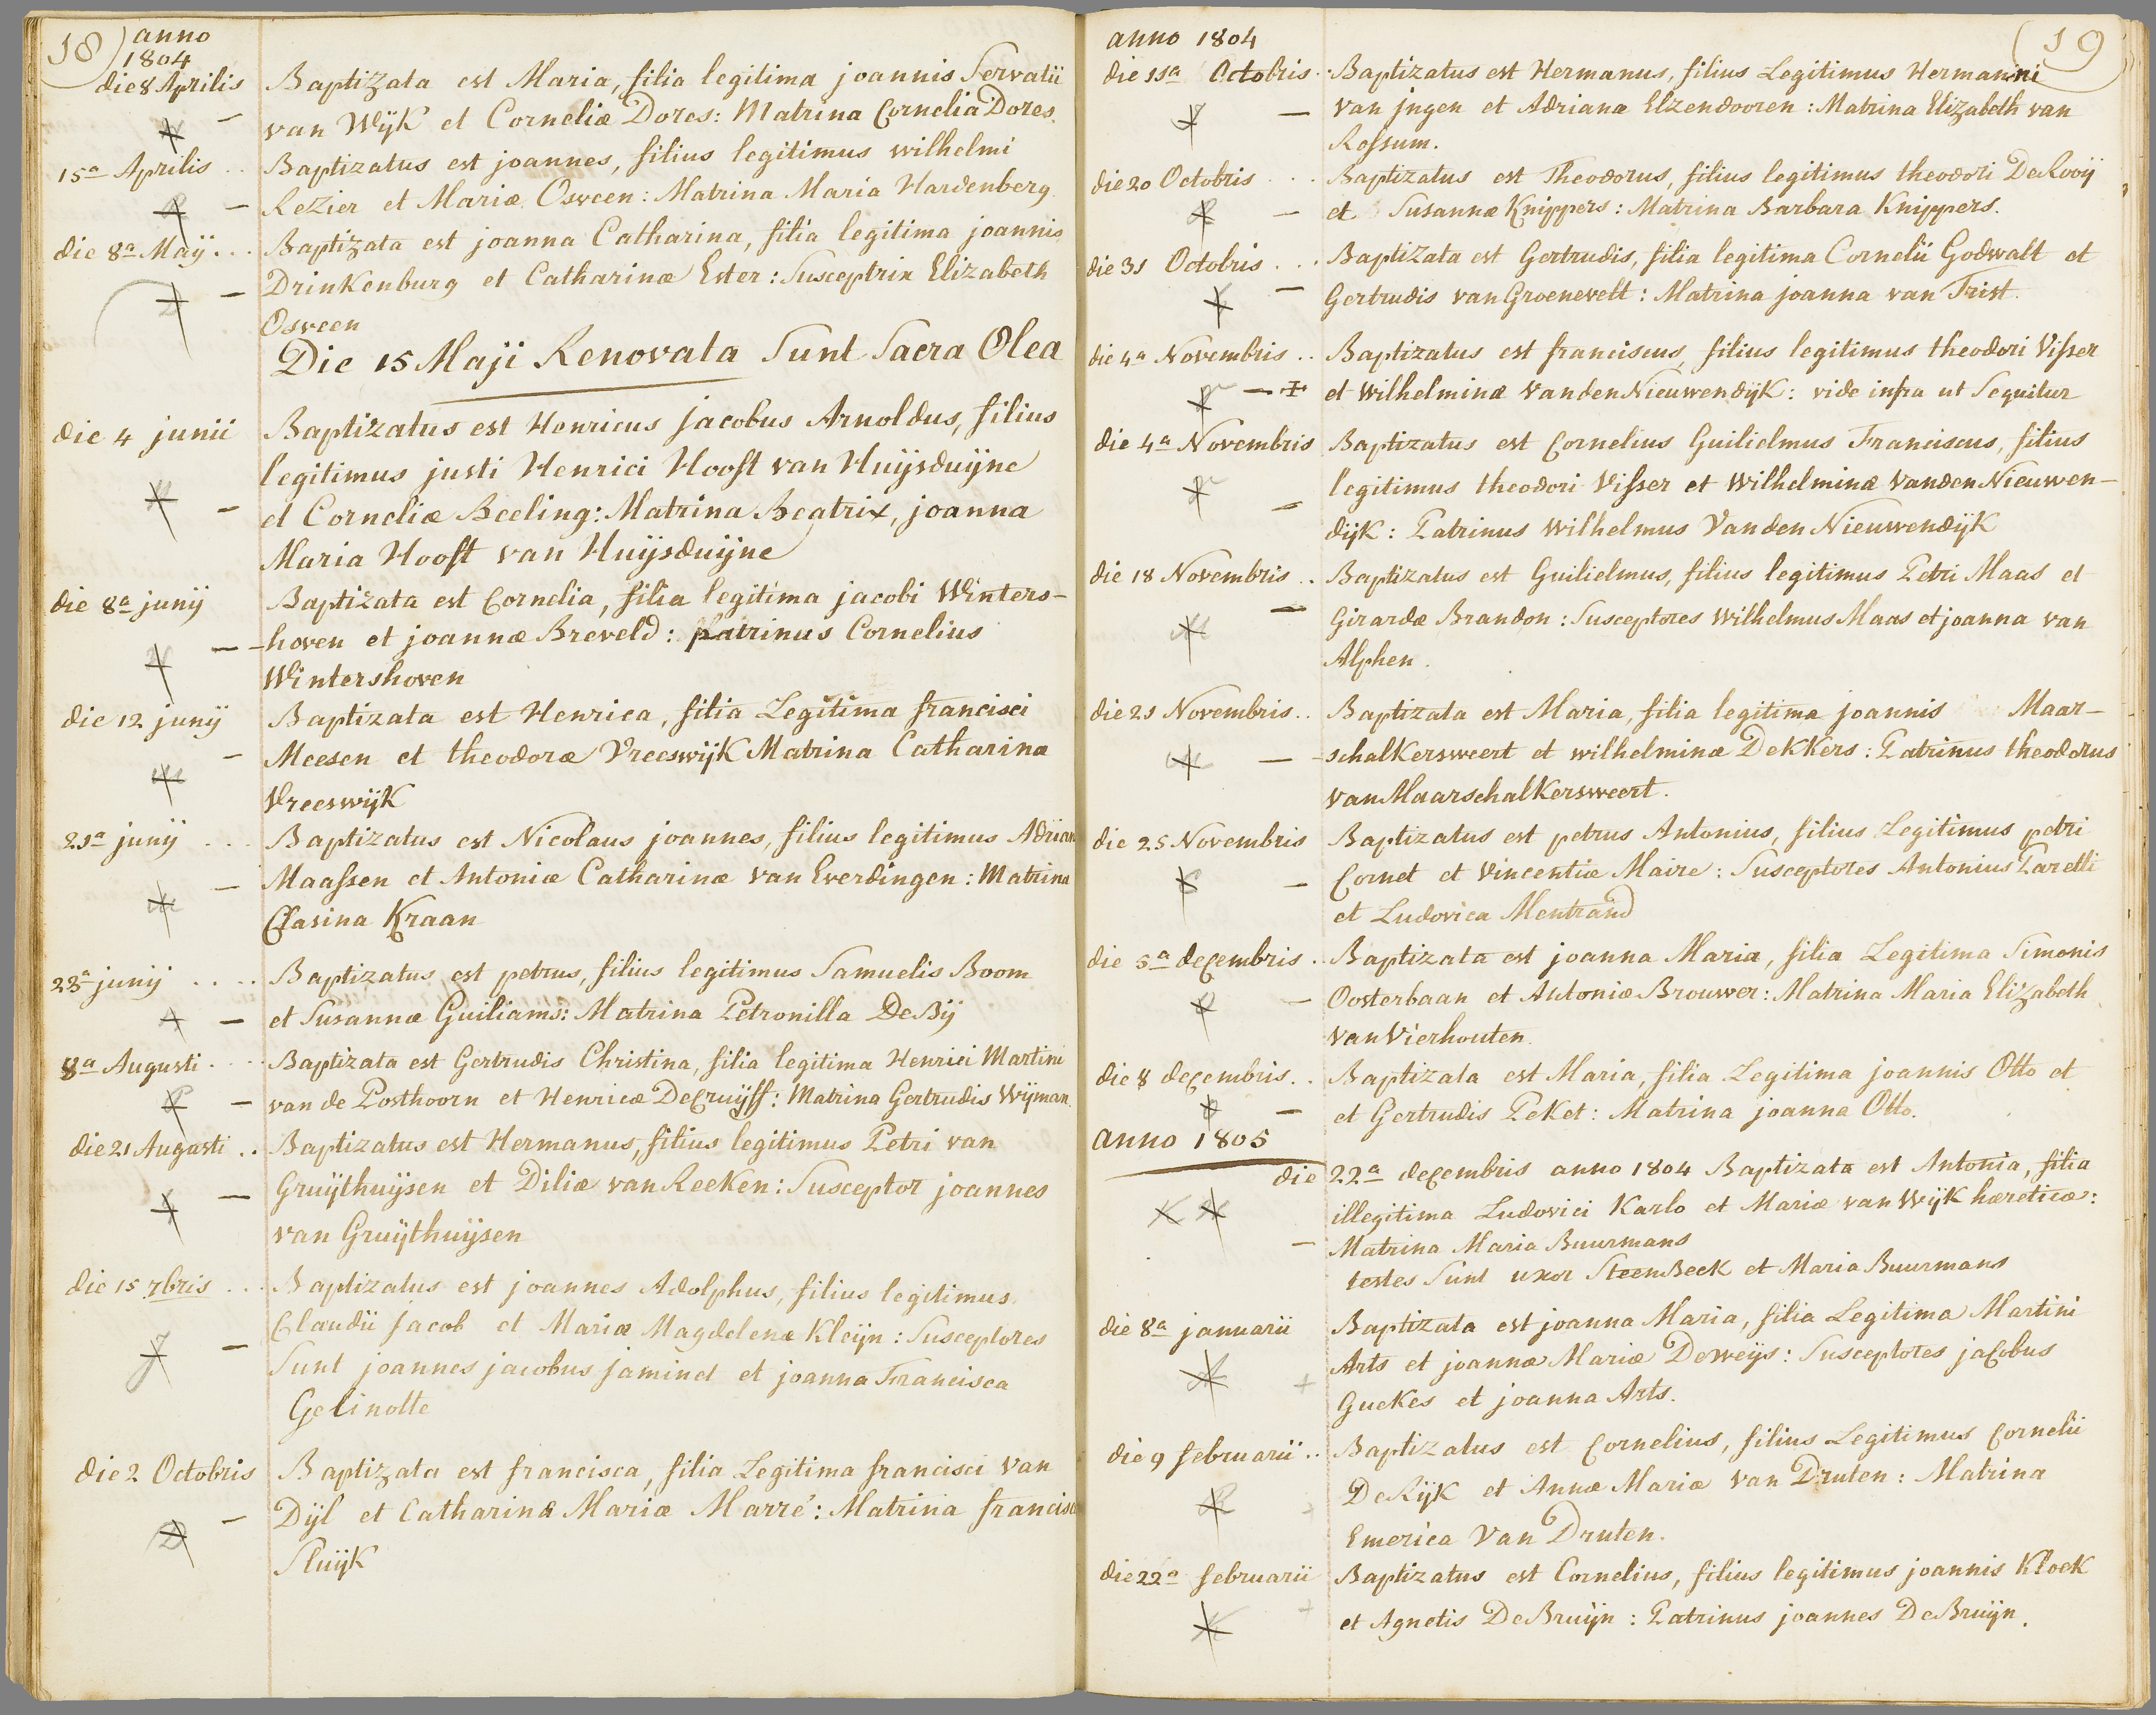 18) anno
1804
die 8 Aprilis Baptizata est Maria, filia legitima joannis Servatii
van Wÿk et Corneliæ Dores: Matrina Cornelia Dores.
15a Aprilis .. Baptizatus est joannes, filius legitimus wilhelmi
Rezier et Mariæ Osveen: Matrina Maria Hardenberg
die 8a Maÿ ... Baptizata est joanna Catharina, filia legitima joannis
Drinkenburg et Catharinæ Ester: Susceptrix Elizabeth
Osveen
Die 15 Maji Renovata Sunt Sacra Olea
die 4 junii Baptizatus est Henricus jacobus Arnoldus, filius
legitimus justi Henrici Hooft van Huÿsduÿne
et Corneliæ Beeling: Matrina Beatrix, joanna
Maria Hooft van Huÿsduÿne
die 8a junÿ Baptizata est Cornelia, filia legitima jacobi Winters-
-hoven et joannæ Breveld: patrinus Cornelius
Wintershoven
die 12 junÿ Baptizata est Henrica, filia Legitima francisci
Meesen et theodoræ Vreeswÿk Matrina Catharina
Vreeswÿk
21a junÿ ... Baptizatus est Nicolaus joannes, filius legitimus Adriani
Maassen et Antoniæ Catharinæ van Everdingen: Matrina
Clasina Kraan
23a junÿ .... Baptizatus est petrus, filius legitimus Samuelis Boom
et Susannæ Guiliams: Matrina Petronilla De Bÿ
8a Augusti .... Baptizata est Gertrudis Christina, filia legitima Henrici Martini
van de Posthoorn et Henricæ De Cruÿff: Matrina Gertrudis Wÿman.
die 21 Augusti .. Baptizatus est Hermanus, filius legitimus Petri van
Gruÿthuÿsen et Diliæ van Reeken: Susceptor joannes
van Gruÿthuÿsen
die 15 7bris ... Baptizatus est joannes Adolphus, filius legitimus
Claudii jacob et Mariæ Magdelenæ Kleÿn: Susceptores
Sunt joannes jacobus jaminet et joanna Francisca
Gelinotte
die 2 Octobris Baptizata est francisca, filia Legitima francisci van
Dÿl et Catharinæ Mariæ Marré: Matrina francisca
Sluÿk
anno 1804 (19
die 11a Octobris .. Baptizatus est Hermanus, filius Legitimus Hermanni
van jngen et Adrianæ Elzendooren: Matrina Elizabeth van
Rossum.
die 20 Octobris ... Baptizatus est Theodorus, filius legitimus theodori De Rooÿ
et Susannæ Knippers: Matrina Barbara Knippers.
die 31 Octobris ... Baptizata est Gertrudis, filia legitima Cornelii Godwalt et
Gertrudis van Groenevelt: Matrina joanna van Trist.
die 4a Novembris .. Baptizatus est franciscus, filius legitimus theodori Visser
et wilhelminæ van den Nieuwendÿk: vide infra ut Sequitur
die 4a Novembris Baptizatus est Cornelius Guilielmus Franciscus, filius
legitimus theodori Visser et Wilhelminæ van den Nieuwen-
dÿk: Patrinus wilhelmus Van den Nieuwendÿk
die 18 Novembris .. Baptizatus est Guilielmus, filius legitimus Petri Maas et
Girardæ Brandon: Susceptores wilhelmus Maas et joanna van
Alphen.
die 21 Novembris .. Baptizata est Maria, filia legitima joannis Maar-
-schalkersweert et wilhelminæ Dekkers: Patrinus theodorus
van Maarschalkersweert.
die 25 Novembris Baptizatus est petrus Antonius, filius Legitimus petri
Cornet et Vincentiæ Maire: Susceptores Antonius Tarelli
et Ludovica Mentrand
die 5a decembris .. Baptizata est joanna Maria, filia Legitima Simonis
Oosterbaan et Antoniæ Brouwer: Matrina Maria Elizabeth
van Vierhouten.
die 8 decembris .. Baptizata est Maria, filia Legitima joannis Otto et
et Gertrudis Peket: Matrina joanna Otto.
anno 1805
die 22a decembris anno 1804 Baptizata est Antonia, filia
illegitima Ludovici Karlo et Mariæ van Wÿk hæreticæ:
Matrina Maria Buurmans
testes Sunt uxor Steenbeek et Maria Buurmans
die 8a januarii Baptizata est joanna Maria, filia Legitima Martini
Arts et joannæ Mariæ De weÿs: Susceptores jacobus
Guekes et joanna Arts.
die 9 februarii .. Baptizatus est Cornelius, filius Legitimus Cornelii
De Rÿk et Annæ Mariæ van Druten: Matrina
Emerica Van Druten.
die 22a februarii Baptizatus est Cornelius, filius legitimus joannis Kloek
et Agnetis De Bruÿn: Patrinus joannes De Bruÿn.